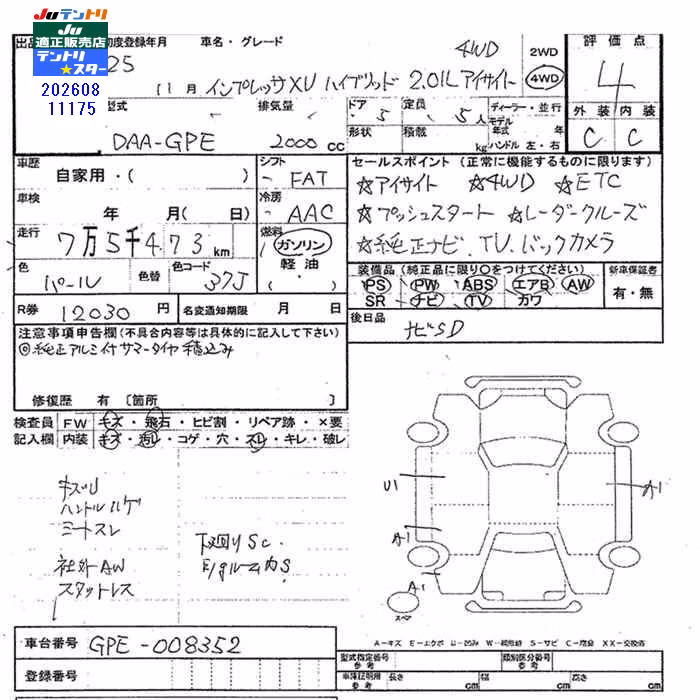 JUテントリ
JU
適正販売店
テントリ
★スター
202608
11175
初度登録年月 車名・グレード
25 11月 インプレッサXV ハイブリッド 2.0iL アイサイト
4WD
2WD
4WD
評価点
4
外装 内装
C C
型式 DAA-GPE
排気量 2000 cc
ドア 5
定員 5人
形状
積載 kg
ディーラー・並行
モデル年式 年
ハンドル 左・右
車歴 自家用・( )
シフト FAT
車検 年 月(日)
冷房 AAC
走行 7万5千473km
燃料 ガソリン
軽油
( )
色 パール
色替
色コード 37J
セールスポイント (正常に機能するものに限ります)
☆アイサイト ☆4WD ☆ETC
☆プッシュスタート ☆レーダークルーズ
☆純正ナビ、TV、バックカメラ
装備品 (純正品に限り○をつけてください)
PS PW ABS エアB AW
SR ナビ TV カワ
新車保証書
有・無
R券 12030円
名変通知期限 月 日
後日品
ナビSD
注意事項申告欄(不具合内容等は具体的に記入して下さい)
◎純正アルミ付サマータイヤ積込み
修復歴 有 〔箇所 〕
検査員 FW キズ・飛石・ヒビ割・リペア跡・×要
記入欄 内装 キズ・汚レ・コゲ・穴・スレ・キレ・破レ
キズU
ハンドルハゲ
シートスレ
社外AW
スタットレス
下廻りSC
E/gルーム内S
U1
A1
A1
A1
スペア
A-キズ E-エクボ U-凹み W-補修跡 S-サビ C-腐蝕 XX-交換済
車台番号 GPE-008352
登録番号
型式指定番号
類別区分番号
車庫証明用参考 長さ cm 幅 cm 高さ cm